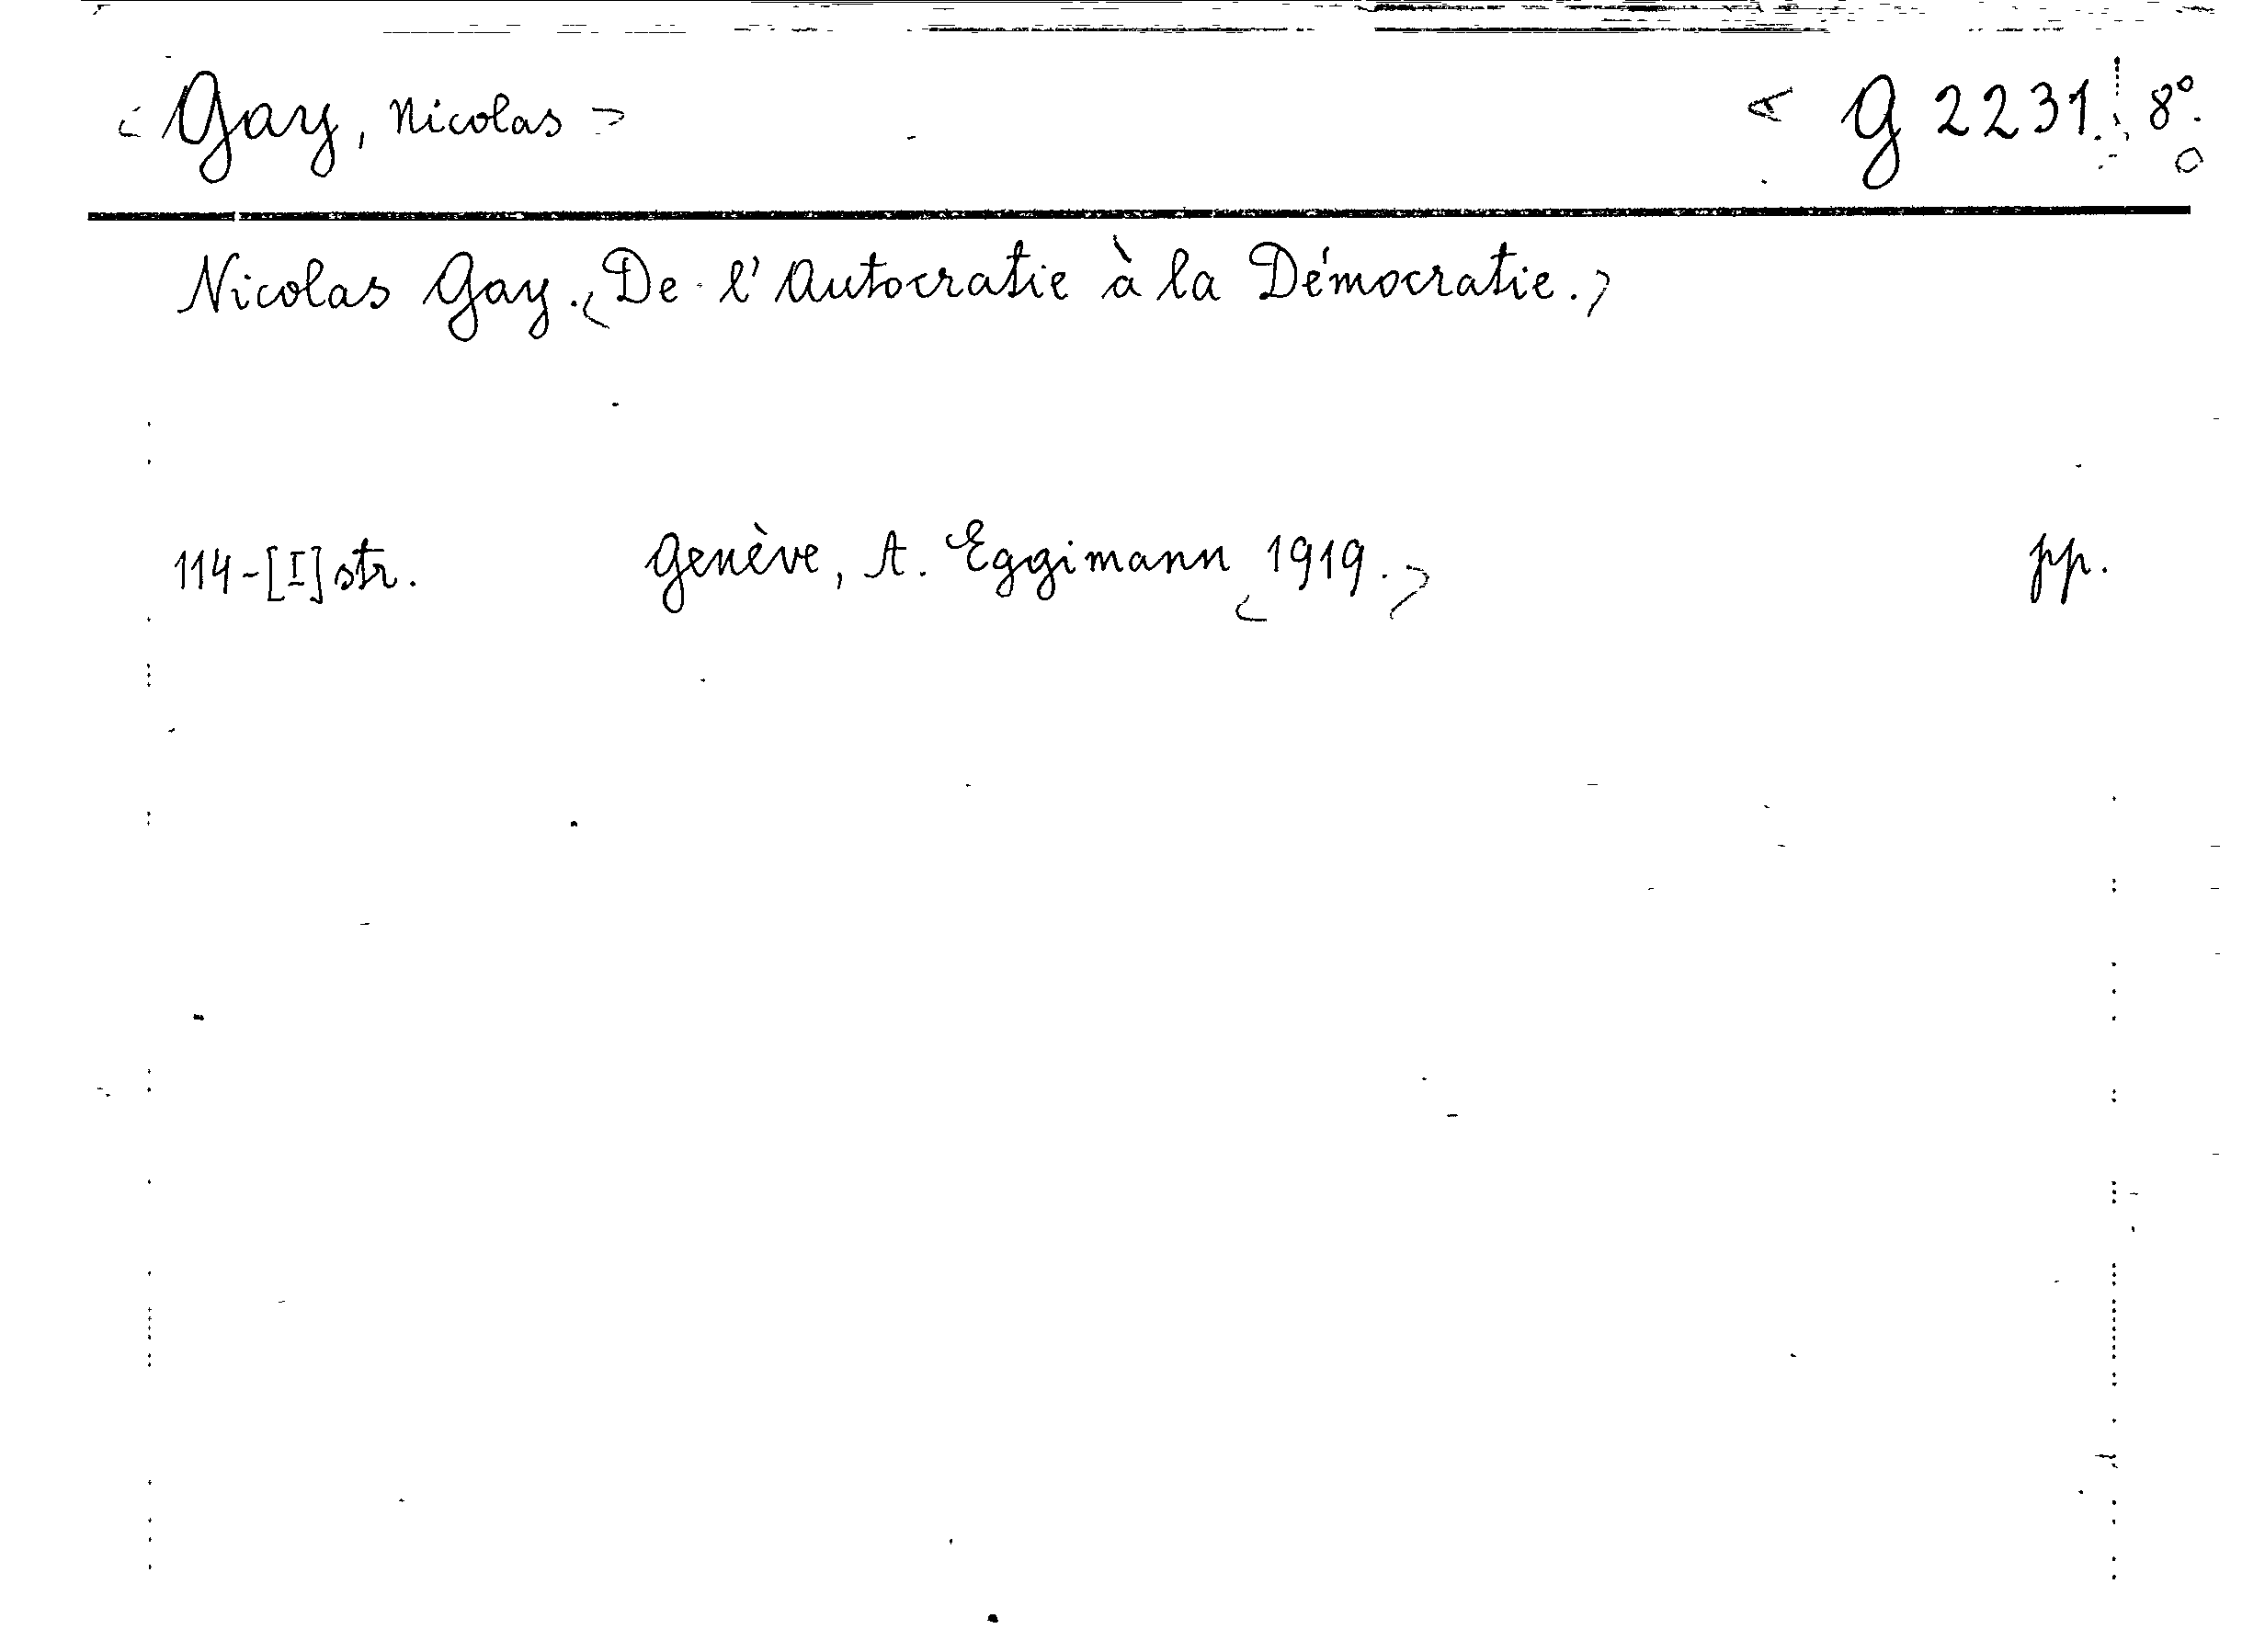 < Gay, Nicolas > < G 2231. 8°.
Nicolas Gay. <De l'Autocratie à la Démocratie.>
114-[I] str. Genève, A. Eggimann <1919.> pp.